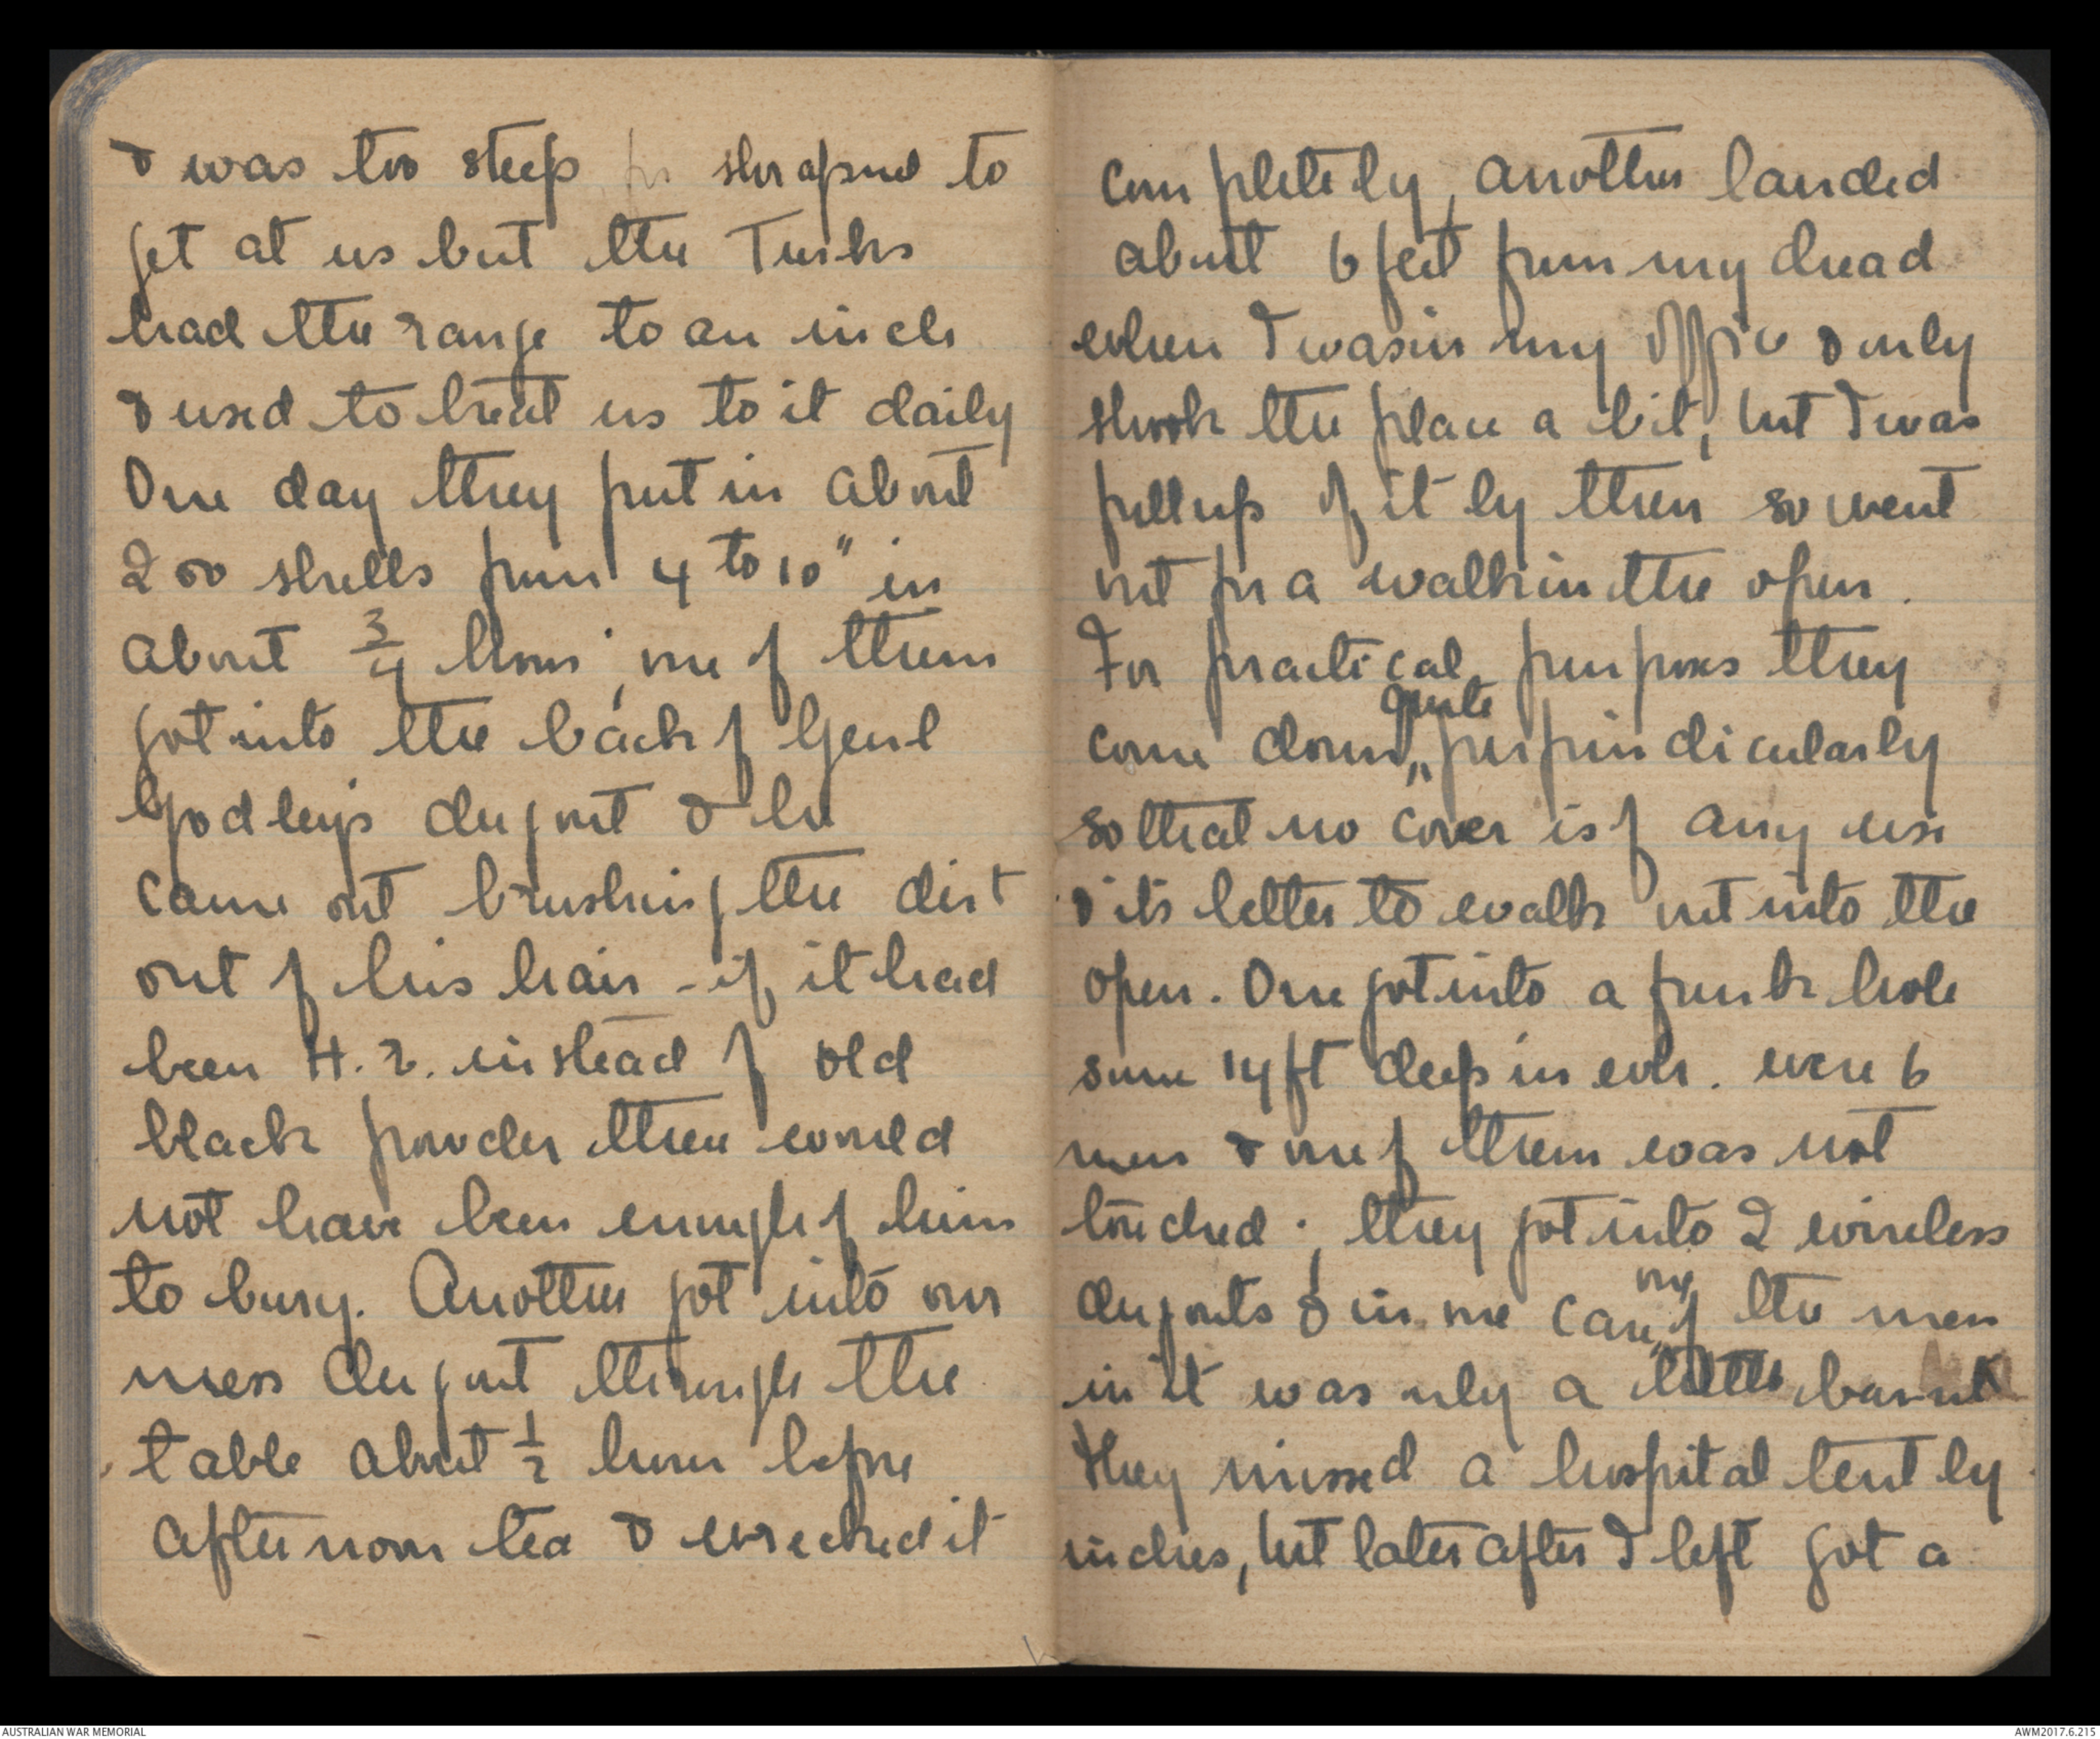 & was too steep for shrapnel to
get at us but the Turks
had the range to an inch
& used to treat us to it daily
One day they put in about
200 shells from 4 to 10" in
about 3/4 hour, one of them
got into the back of Genl
Godley's dugout & he
came out brushing the dirt
out of his hair - if it had
been H.E. instead of old
black powder there would
not have been enough of him
to bury. Another got into our
mess dugout through the
table about 1/2 hour before
afternoon tea & wrecked it
completely, another landed
about 6 feet from my head
when I was in my office & only
shook the place a bit, but I was
full up of it by then so went
out for a walk in the open.
For practical purposes they
come down quite perpindicularly
so that no cover is of any use
& its better to walk out into the
open. One got into a funk hole
some 14ft deep in wh. were 6
men & one of them was not
touched; they got into 2 wireless
dugouts & in one case one of the men
in it was only a little burnt
They missed a hospital tent by
inches, but later after I left got a
AUSTRALIAN WAR MEMORIAL
AWM2017.6.215